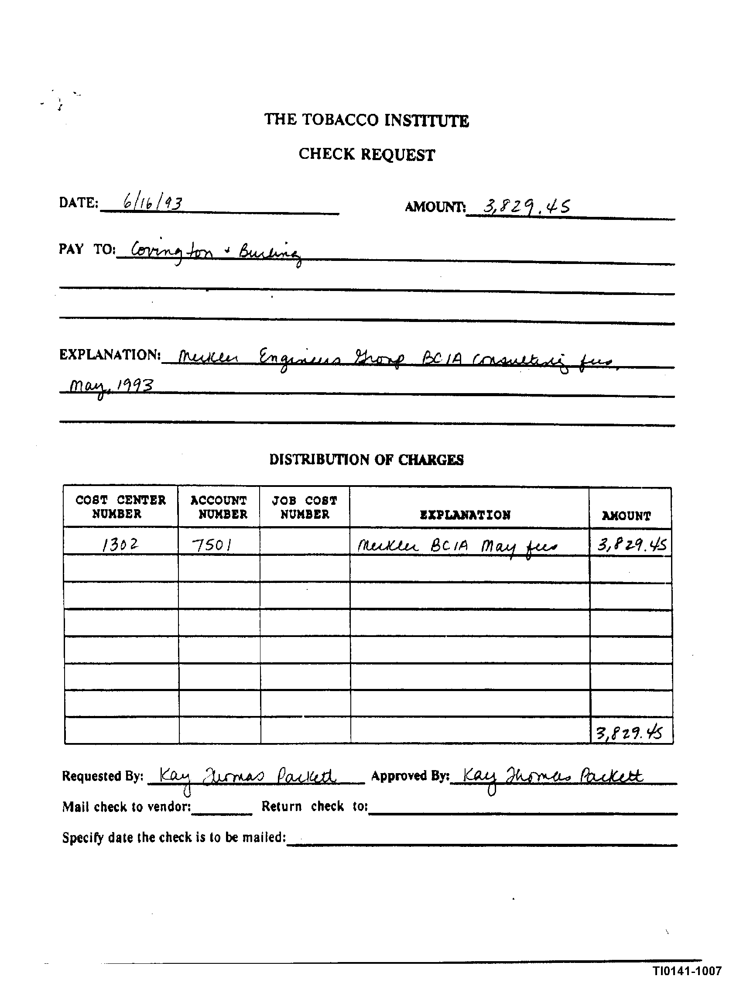 THE TOBACCO INSTITUTE
CHECK REQUEST
DATE: 6/16/93 AMOUNT: 3,829.45
PAY TO: Covington + Burling
EXPLANATION: Merkler Engineers Group BCIA consulting fees,
May, 1993
DISTRIBUTION OF CHARGES
COST CENTER NUMBER ACCOUNT NUMBER JOB COST NUMBER EXPLANATION AMOUNT
1302 7501 Merkler BCIA May fees 3,829.45
3,829.45
Requested By: Kay Thomas Packett Approved By: Kay Thomas Packett
Mail check to vendor: Return check to:
Specify date the check is to be mailed:
TI0141-1007